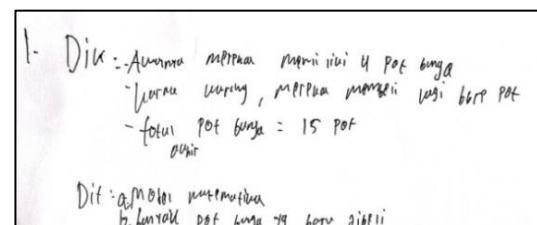 1. Dik : - Awalnya mereka memiliki 4 pot bunga
- karna kurang, mereka membeli lagi bbrp pot
- total pot bunga = 15 pot
akhir
Dit : a. Model matematika
b. banyak pot bunga yg baru dibeli